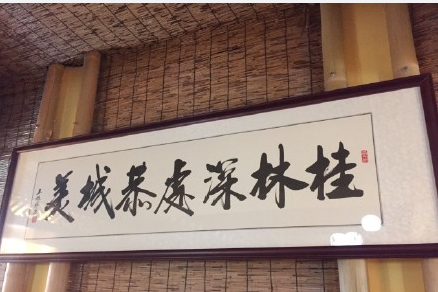 桂林深處恭城美